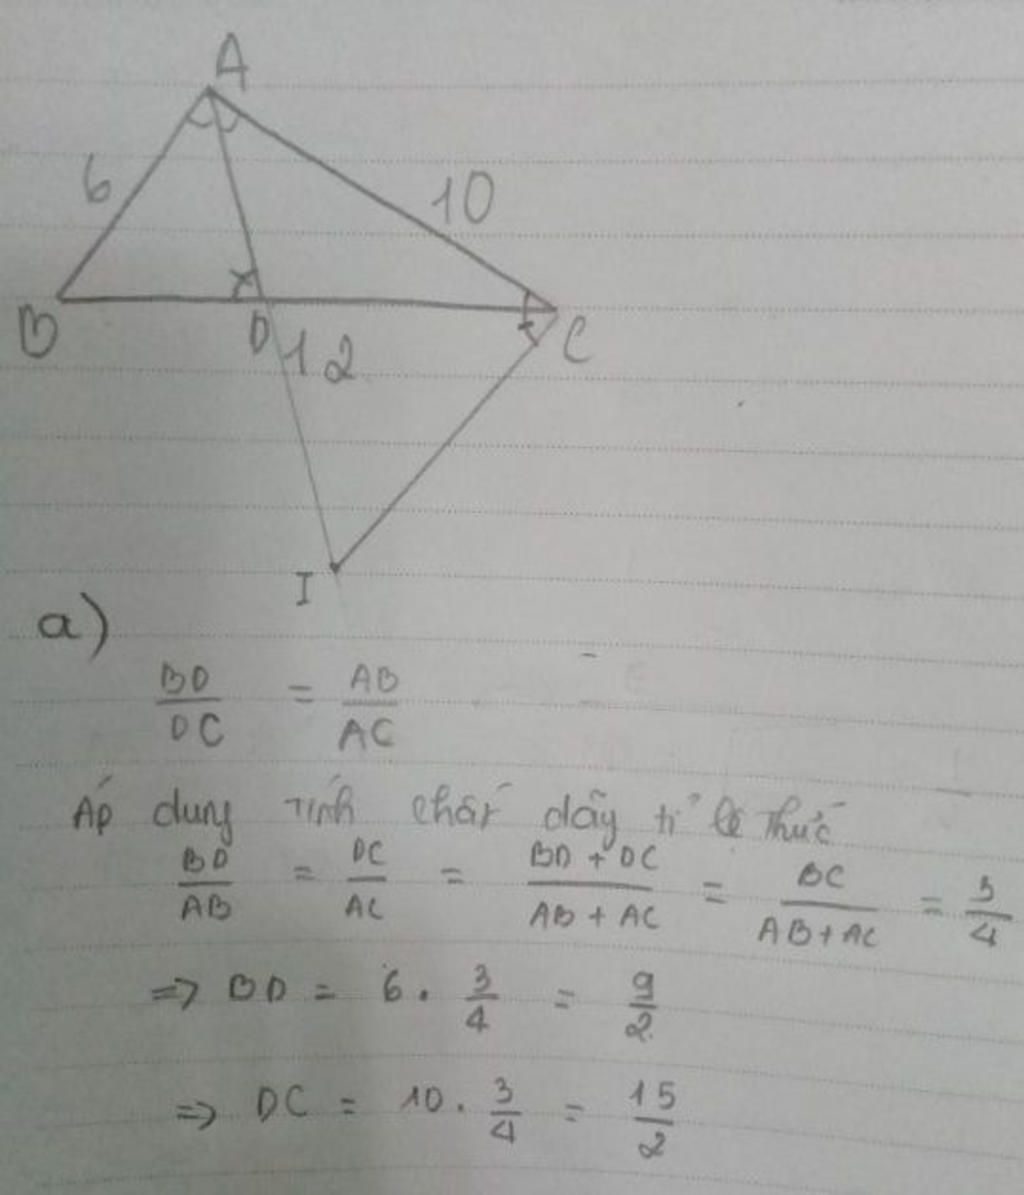 A
6
10
B
D
12
C
I
a)
BD/DC = AB/AC
Áp dung tính chất dãy tỉ lệ thức
BD/AB = DC/AC = BD + DC/AB + AC = BC/AB+AC = 3/4
=> BD = 6 . 3/4 = 9/2
=> DC = 10 . 3/4 = 15/2